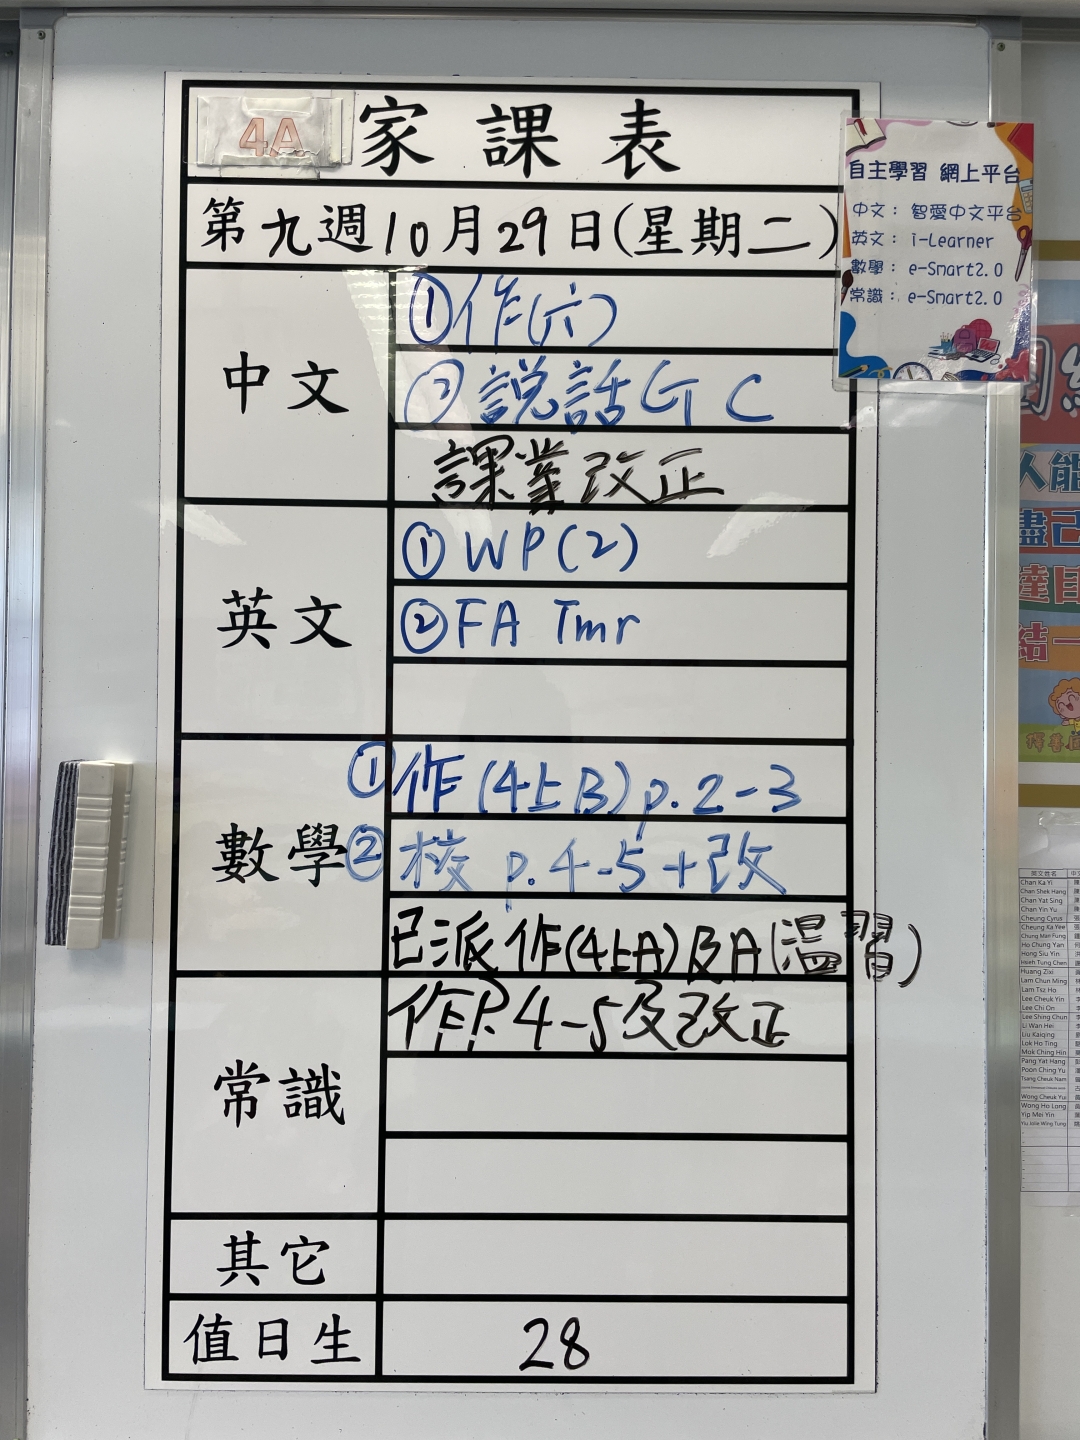 4A 家課表
第九週10月29日(星期二)
中文
①作(六)
②說話GC
課業改正
英文
①WP(2)
②FA Tmr
數學
①作(4上B)p.2-3
②校 p.4-5+改
已派作(4上A)及A(温習)
常識
作P.4-5及改正
其它
值日生
28
自主學習 網上平台
中文：智愛中文平台
英文：i-Learner
數學：e-Smart2.0
常識：e-Smart2.0
人能
盡己
達目
結一
英文姓名
Chan Ka Yi
Chan Shek Hang
Chan Yat Sing
Chan Yin Yu
Cheung Cyrus
Cheung Ka Yee
Chung Man Fung
Ho Chung Yan
Hong Siu Yin
Hsieh Tung Chen
Huang Zixi
Lam Chun Ming
Lam Tsz Ho
Lee Cheuk Yin
Lee Chi On
Lee Shing Chun
Li Wan Hei
Liu Kaiqing
Lok Ho Ting
Mok Ching Hin
Pang Yat Hang
Poon Ching Yu
Tsang Cheuk Nam
Wong Cheuk Yui
Wong Ho Long
Yip Mei Yin
Yiu Jolie Wing Tung